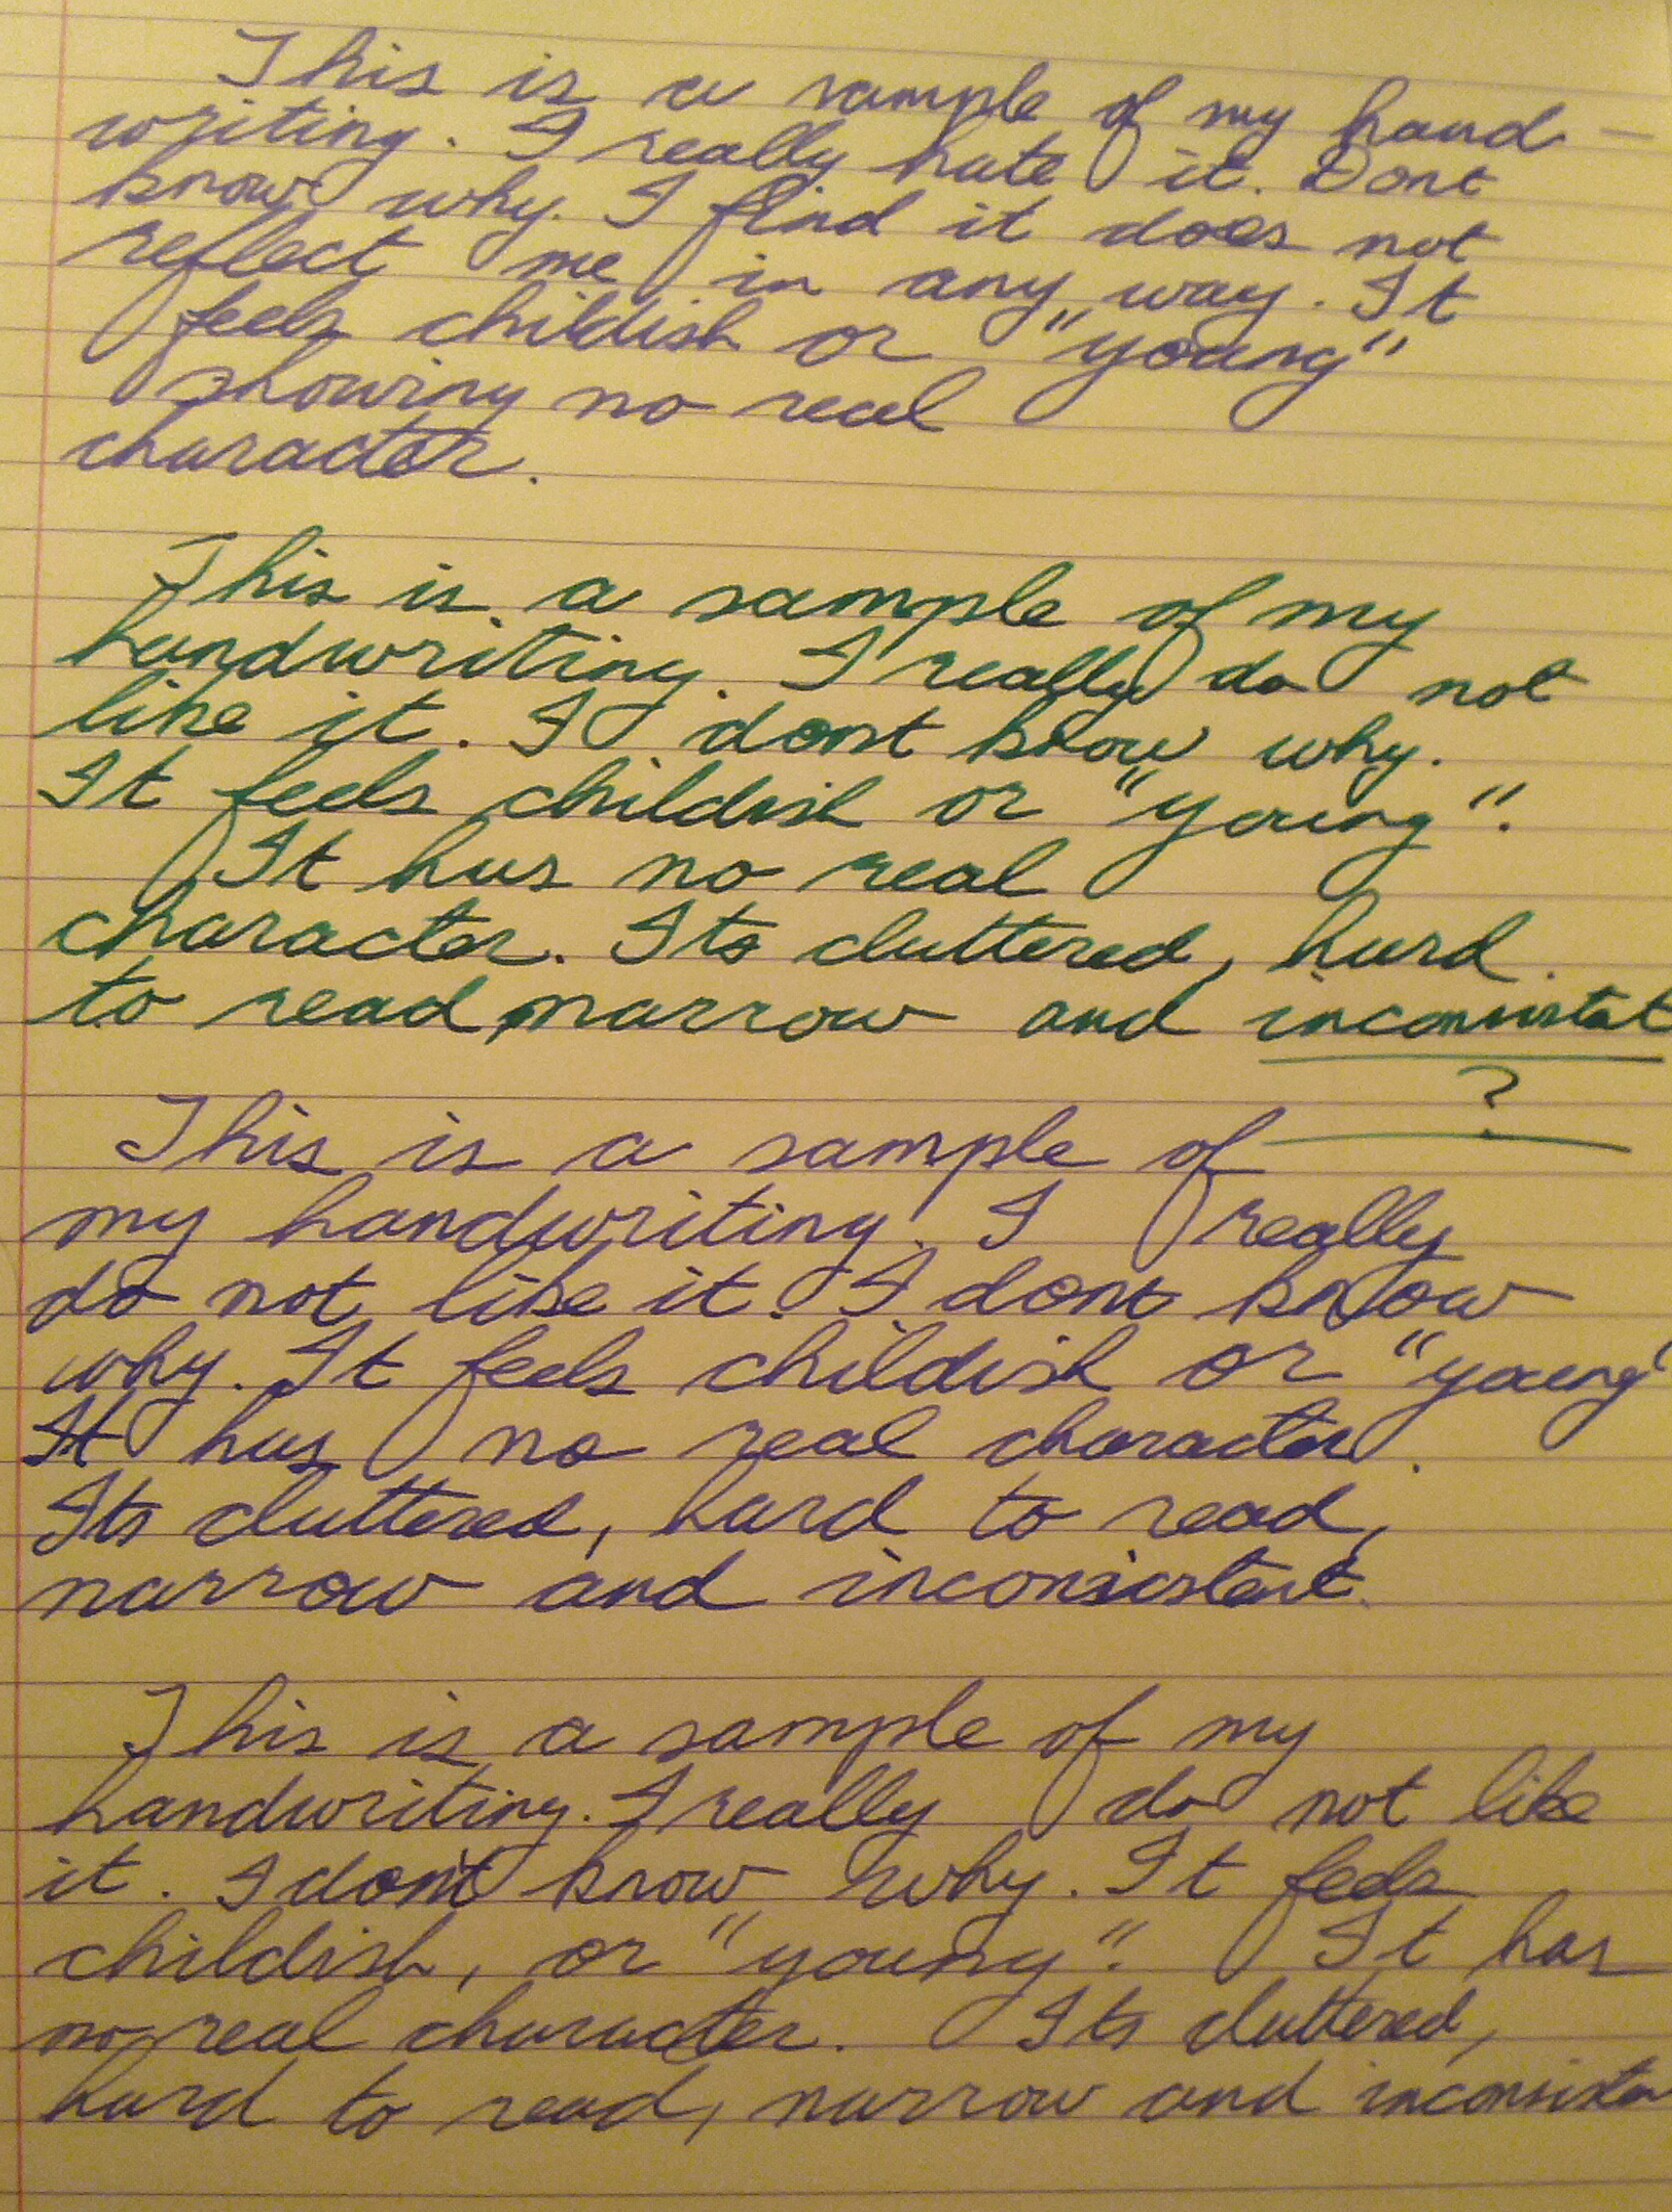 This is a sample of my hand-
writing. I really hate it. Dont
know why. I find it does not
reflect me in any way. It
feels childish or "young"
showing no real
character.
This is a sample of my
handwriting. I really do not
like it. I dont know why.
It feels childish or "young".
It has no real
character. Its cluttered, hard
to read, narrow and inconsistat
?
This is a sample of
my handwriting. I really
do not like it. I dont know
why. It feels childish or "young"
It has no real character.
Its cluttered, hard to read,
narrow and inconsistent.
This is a sample of my
handwriting. I really do not like
it. I don't know why. It feels
childish, or "young". It has
no real character. Its cluttered,
hard to read, narrow and inconsisten